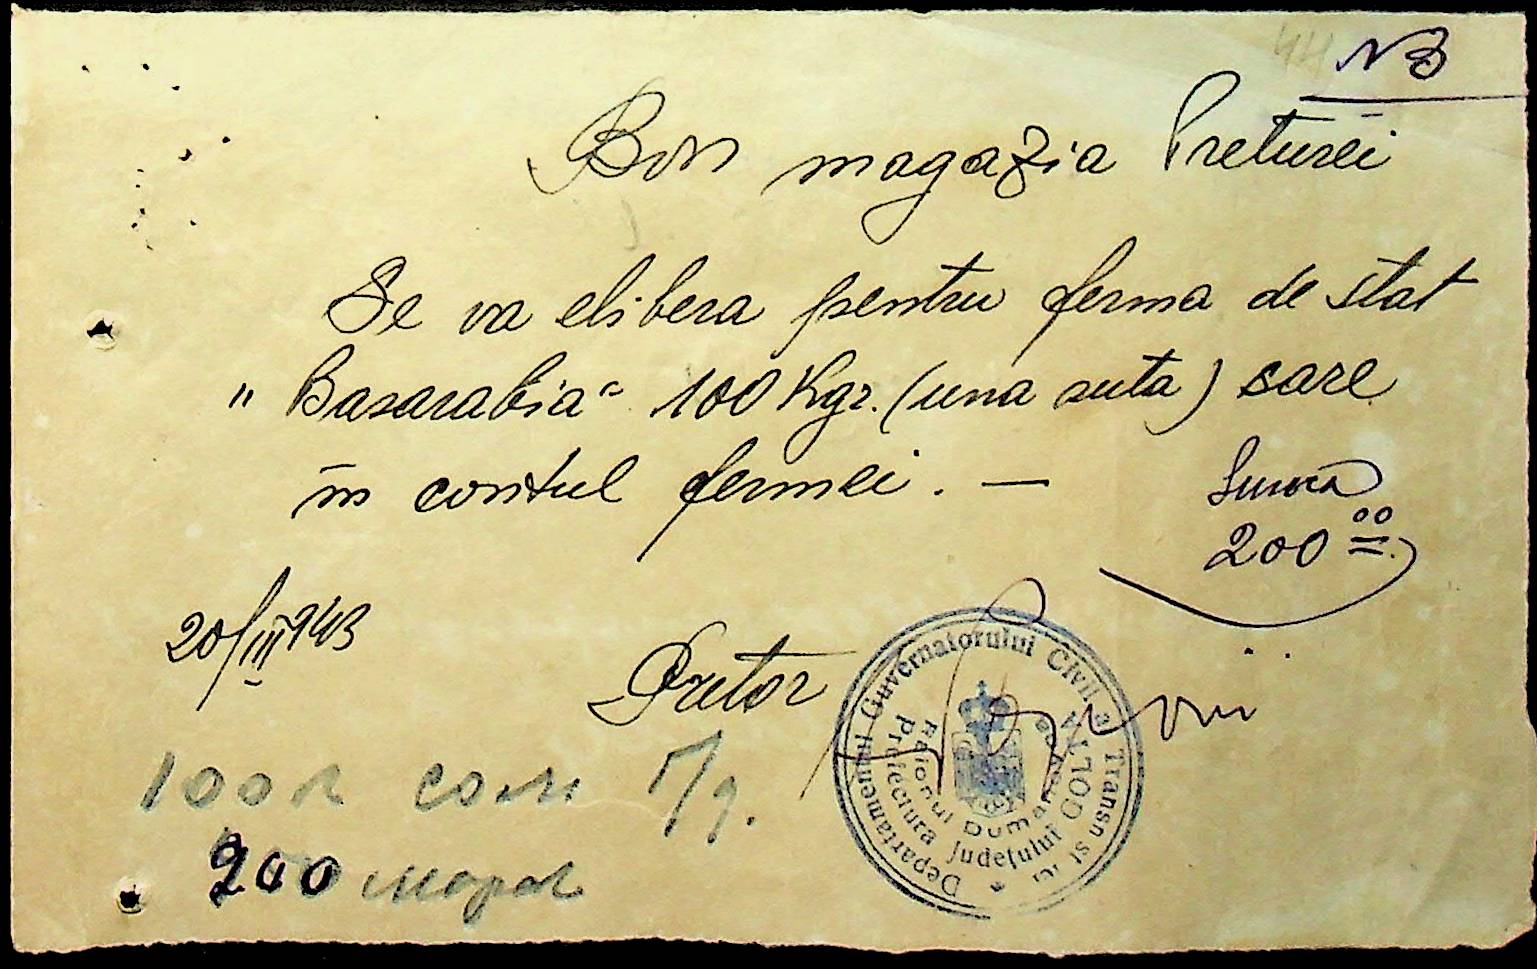 44 No 3
Bon magazia Preturei
Se va elibera pentru ferma de stat
„Basarabia“ 100 Kgr. (una suta) sare
în contul fermei. —
Suma
200 00
20/III 943
Pretor
Departamentul Guvernatorului Civil al Transnistriei
Prefectura Județului GOLTA
Raionul Dumanovca
100 к соли п/г.
200 марок